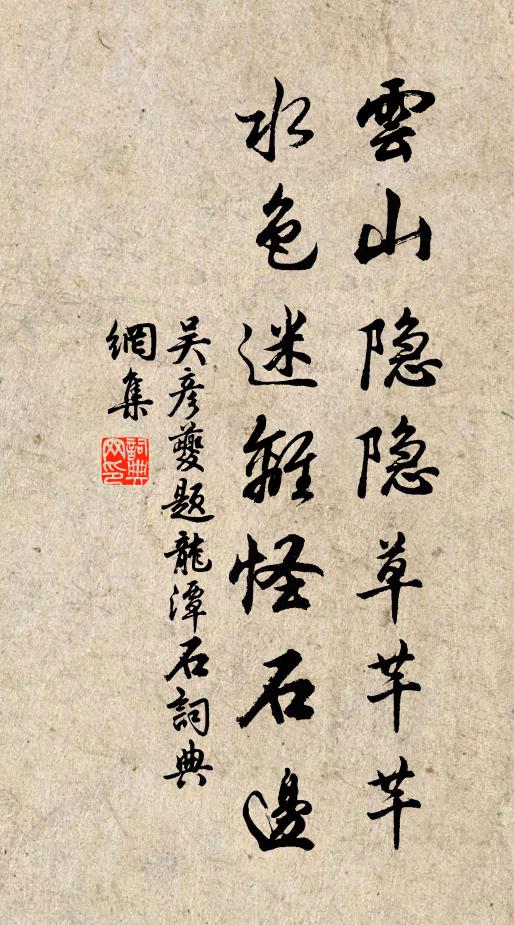 雲山隐隐草芊芊
水色迷離怪石邊
吴彦夔题龍潭石詞典
網集
詞典
网印